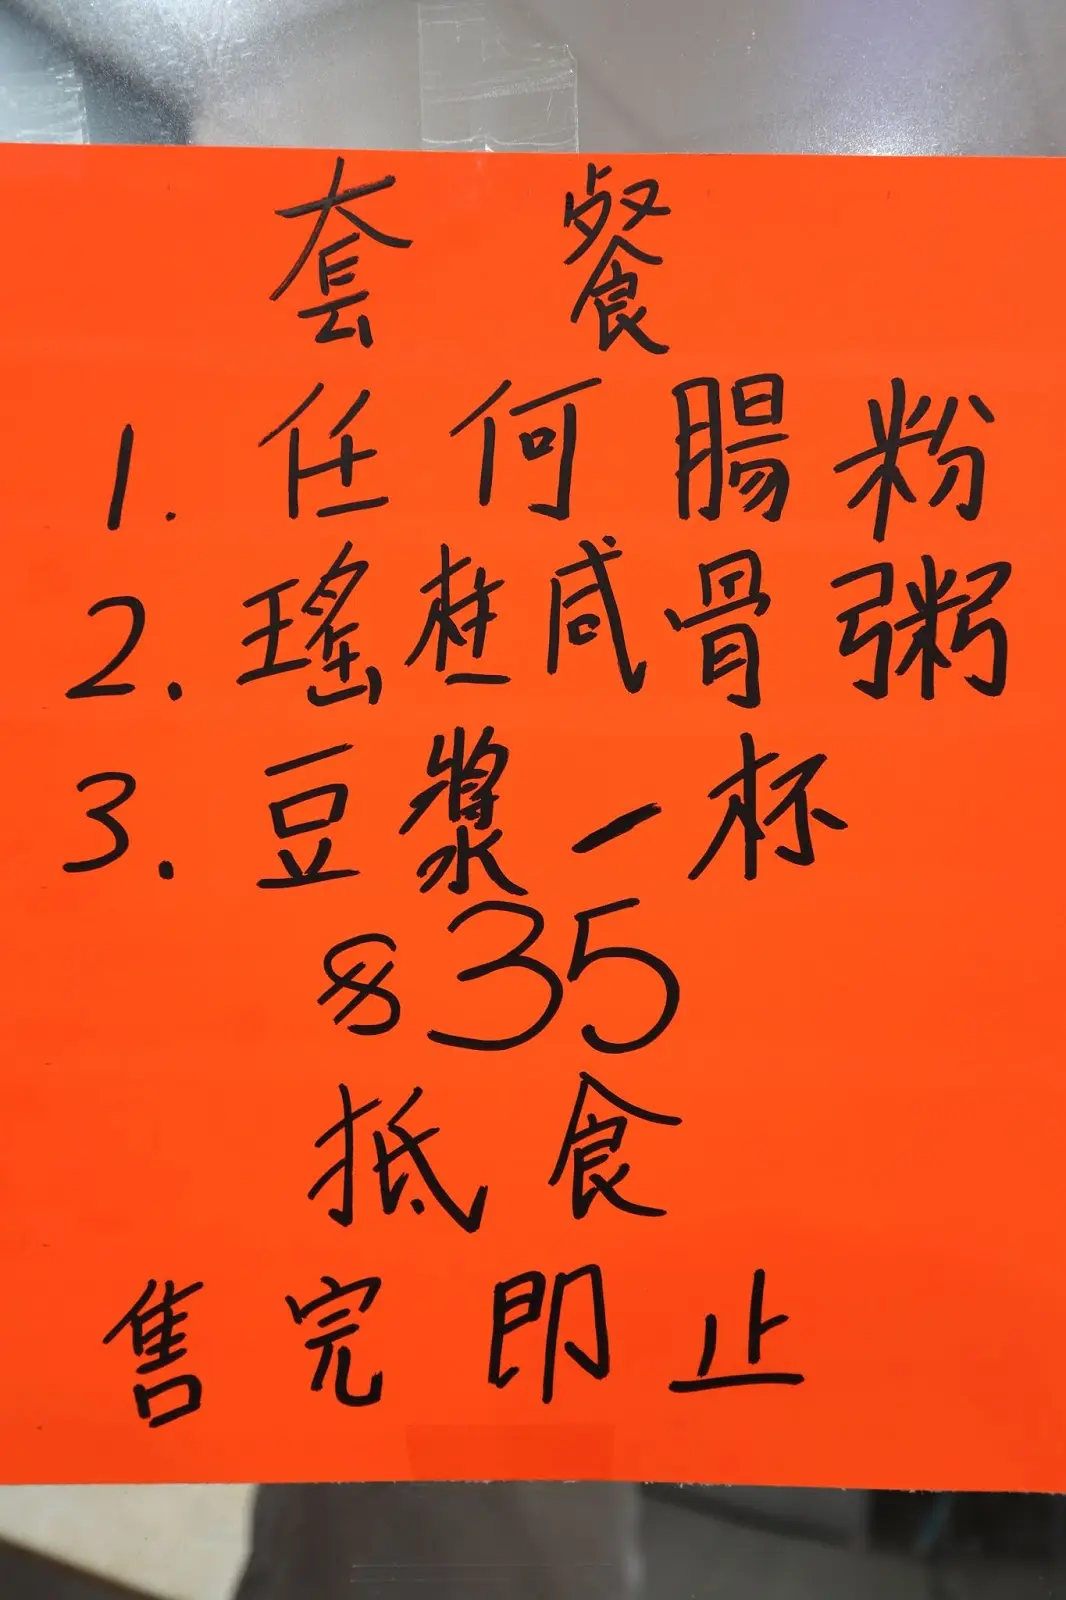 套餐
1. 任何腸粉
2. 瑤柱咸骨粥
3. 豆漿一杯
$35
抵食
售完即止